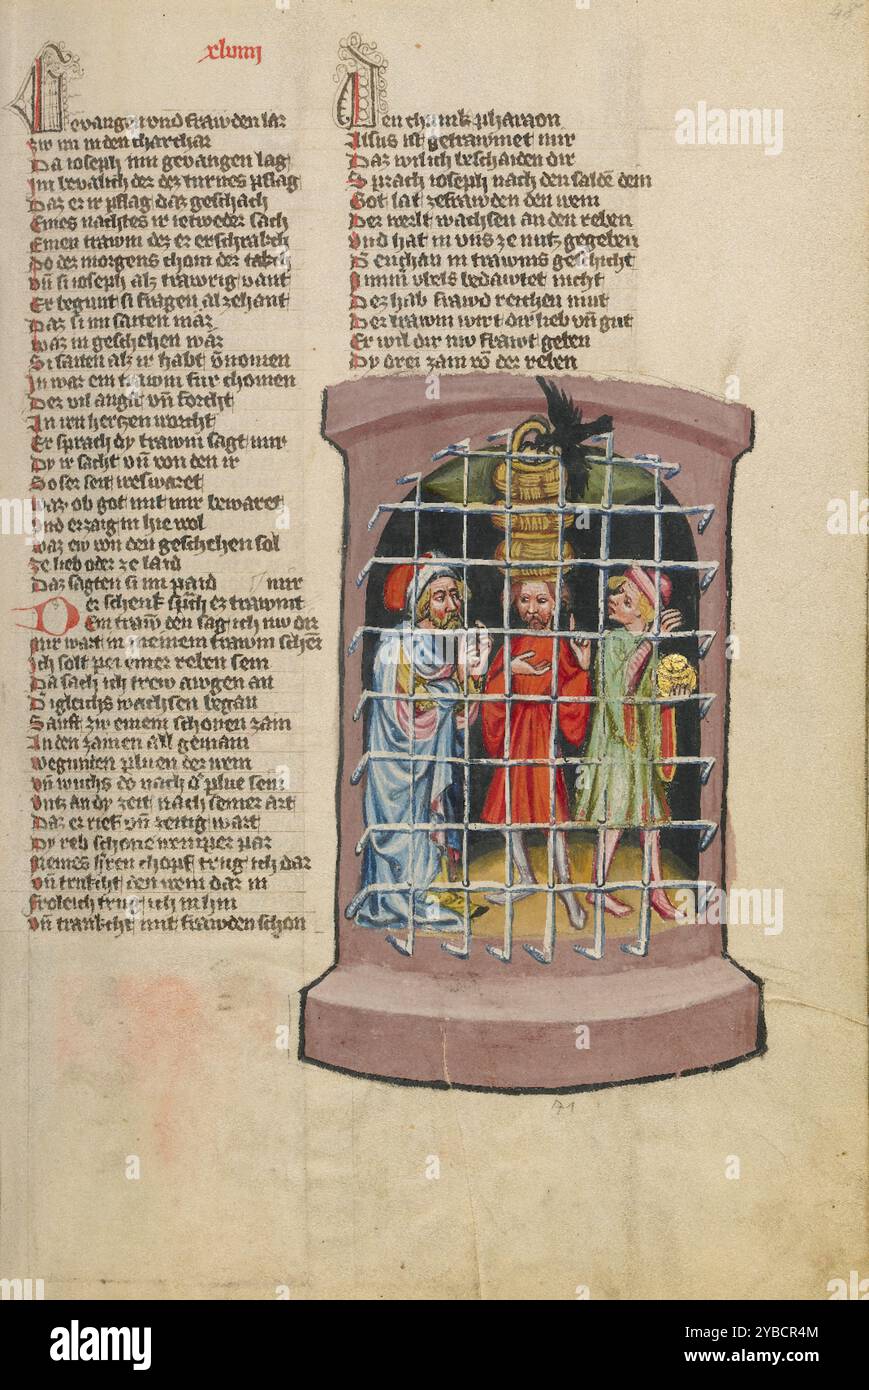 xlviiij
48
Gevangen vnd frawden lär
Zw im in den charchär
Da ioseph inn gevangen lag
Im bevalich der des turnes pflag
Daz er ir pflag daz geschach
Eines nachtes ir ietweder sach
Einen trawm des er erschrakch
Do der morgens chom der takch
Vn̄ si ioseph alz trawrig vant
Er begunt si fragen al zehant
Daz si im saiten mär
Waz in geschehen wär
Si saiten alz ir habt v̄nomen
In wär ein trawm für chomen
Der vil angst vn̄ forcht
An irn hertzen worcht
Er sprach dy trawm sagt mir
Dy ir sacht vn̄ von den ir
So ser seit
Waz ob got mit mir bewäret
Vnd erzaig in hie wol
Waz ew von den geschehen sol
Ze lieb oder ze laid
Daz sagten si im paid
mir
Der schenk sp̄ch er trawmt
Ein trawm den sag ich nw dir
Mir wart in meinem trawm schein
Ich solt pei einer reben sein
Da sach ich drew awgen an
Di gleichs wachsen began
Sanft zw einem schonen zam
An den zamen all gemain
Begunten pluen der wein
Vn̄ wuchs do nach der plue sein
Vntz an dy zeit nach seiner art
Daz er rief vn̄ zeitig wart
Dy reb schone weinper par
Meines h̄ren chopf trug ich dar
Vn̄ trukcht den wein dar in
Froleich trug ich in hin
Vn̄ trankcht mit frawden schon
Den chunik pharaon
Alsus ist getrawmet mir
Daz wil ich beschaiden dir
Sprach ioseph nach den saldē dein
Got lat zefrawden den wein
Der werlt wachsen an den reben
Vnd hat in vns ze nutz gegeben
D euchain trawms geschicht
Nimm̄ vbels bedawtet nicht
Der hab frawd reichen mut
Der trawm wirt dir lieb vn̄ gut
Er wil dir nw frawt geben
Dy drei zam vō der reben
71
alamy
Image ID: 2YBCR4M
www.alamy.com